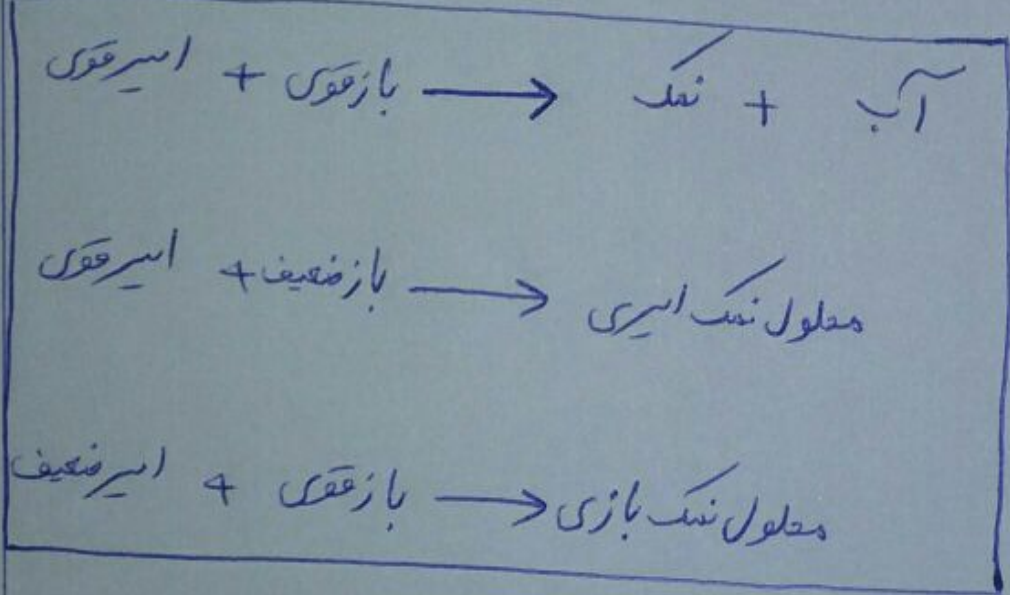 اسید قوی + باز قوی ⟶ نمک + آب
اسید قوی + باز ضعیف ⟶ محلول نمک اسیدی
اسید ضعیف + باز قوی ⟶ محلول نمک بازی